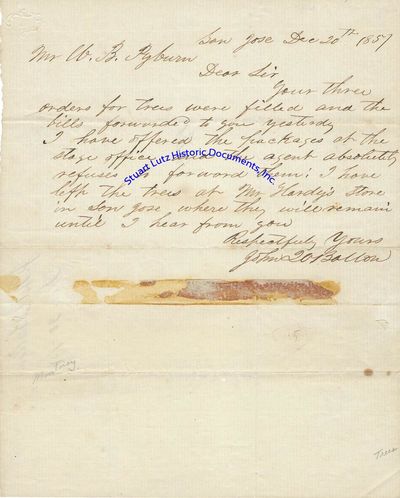 San Jose Dec 20th 1857
Mr W. B. Pyburn
Dear Sir
Your three
orders for trees were filled and the
bills forwarded to you yesterday
I have offered the packages at the
stage office and the agent absolutely
refuses to forword them; I have
left the trees at Mr Hardy's store
in San Jose where they will remain
until I hear from you
Respectfully Yours
John Q Ballou
Stuart Lutz Historic Documents, Inc.
Monterey
Trees